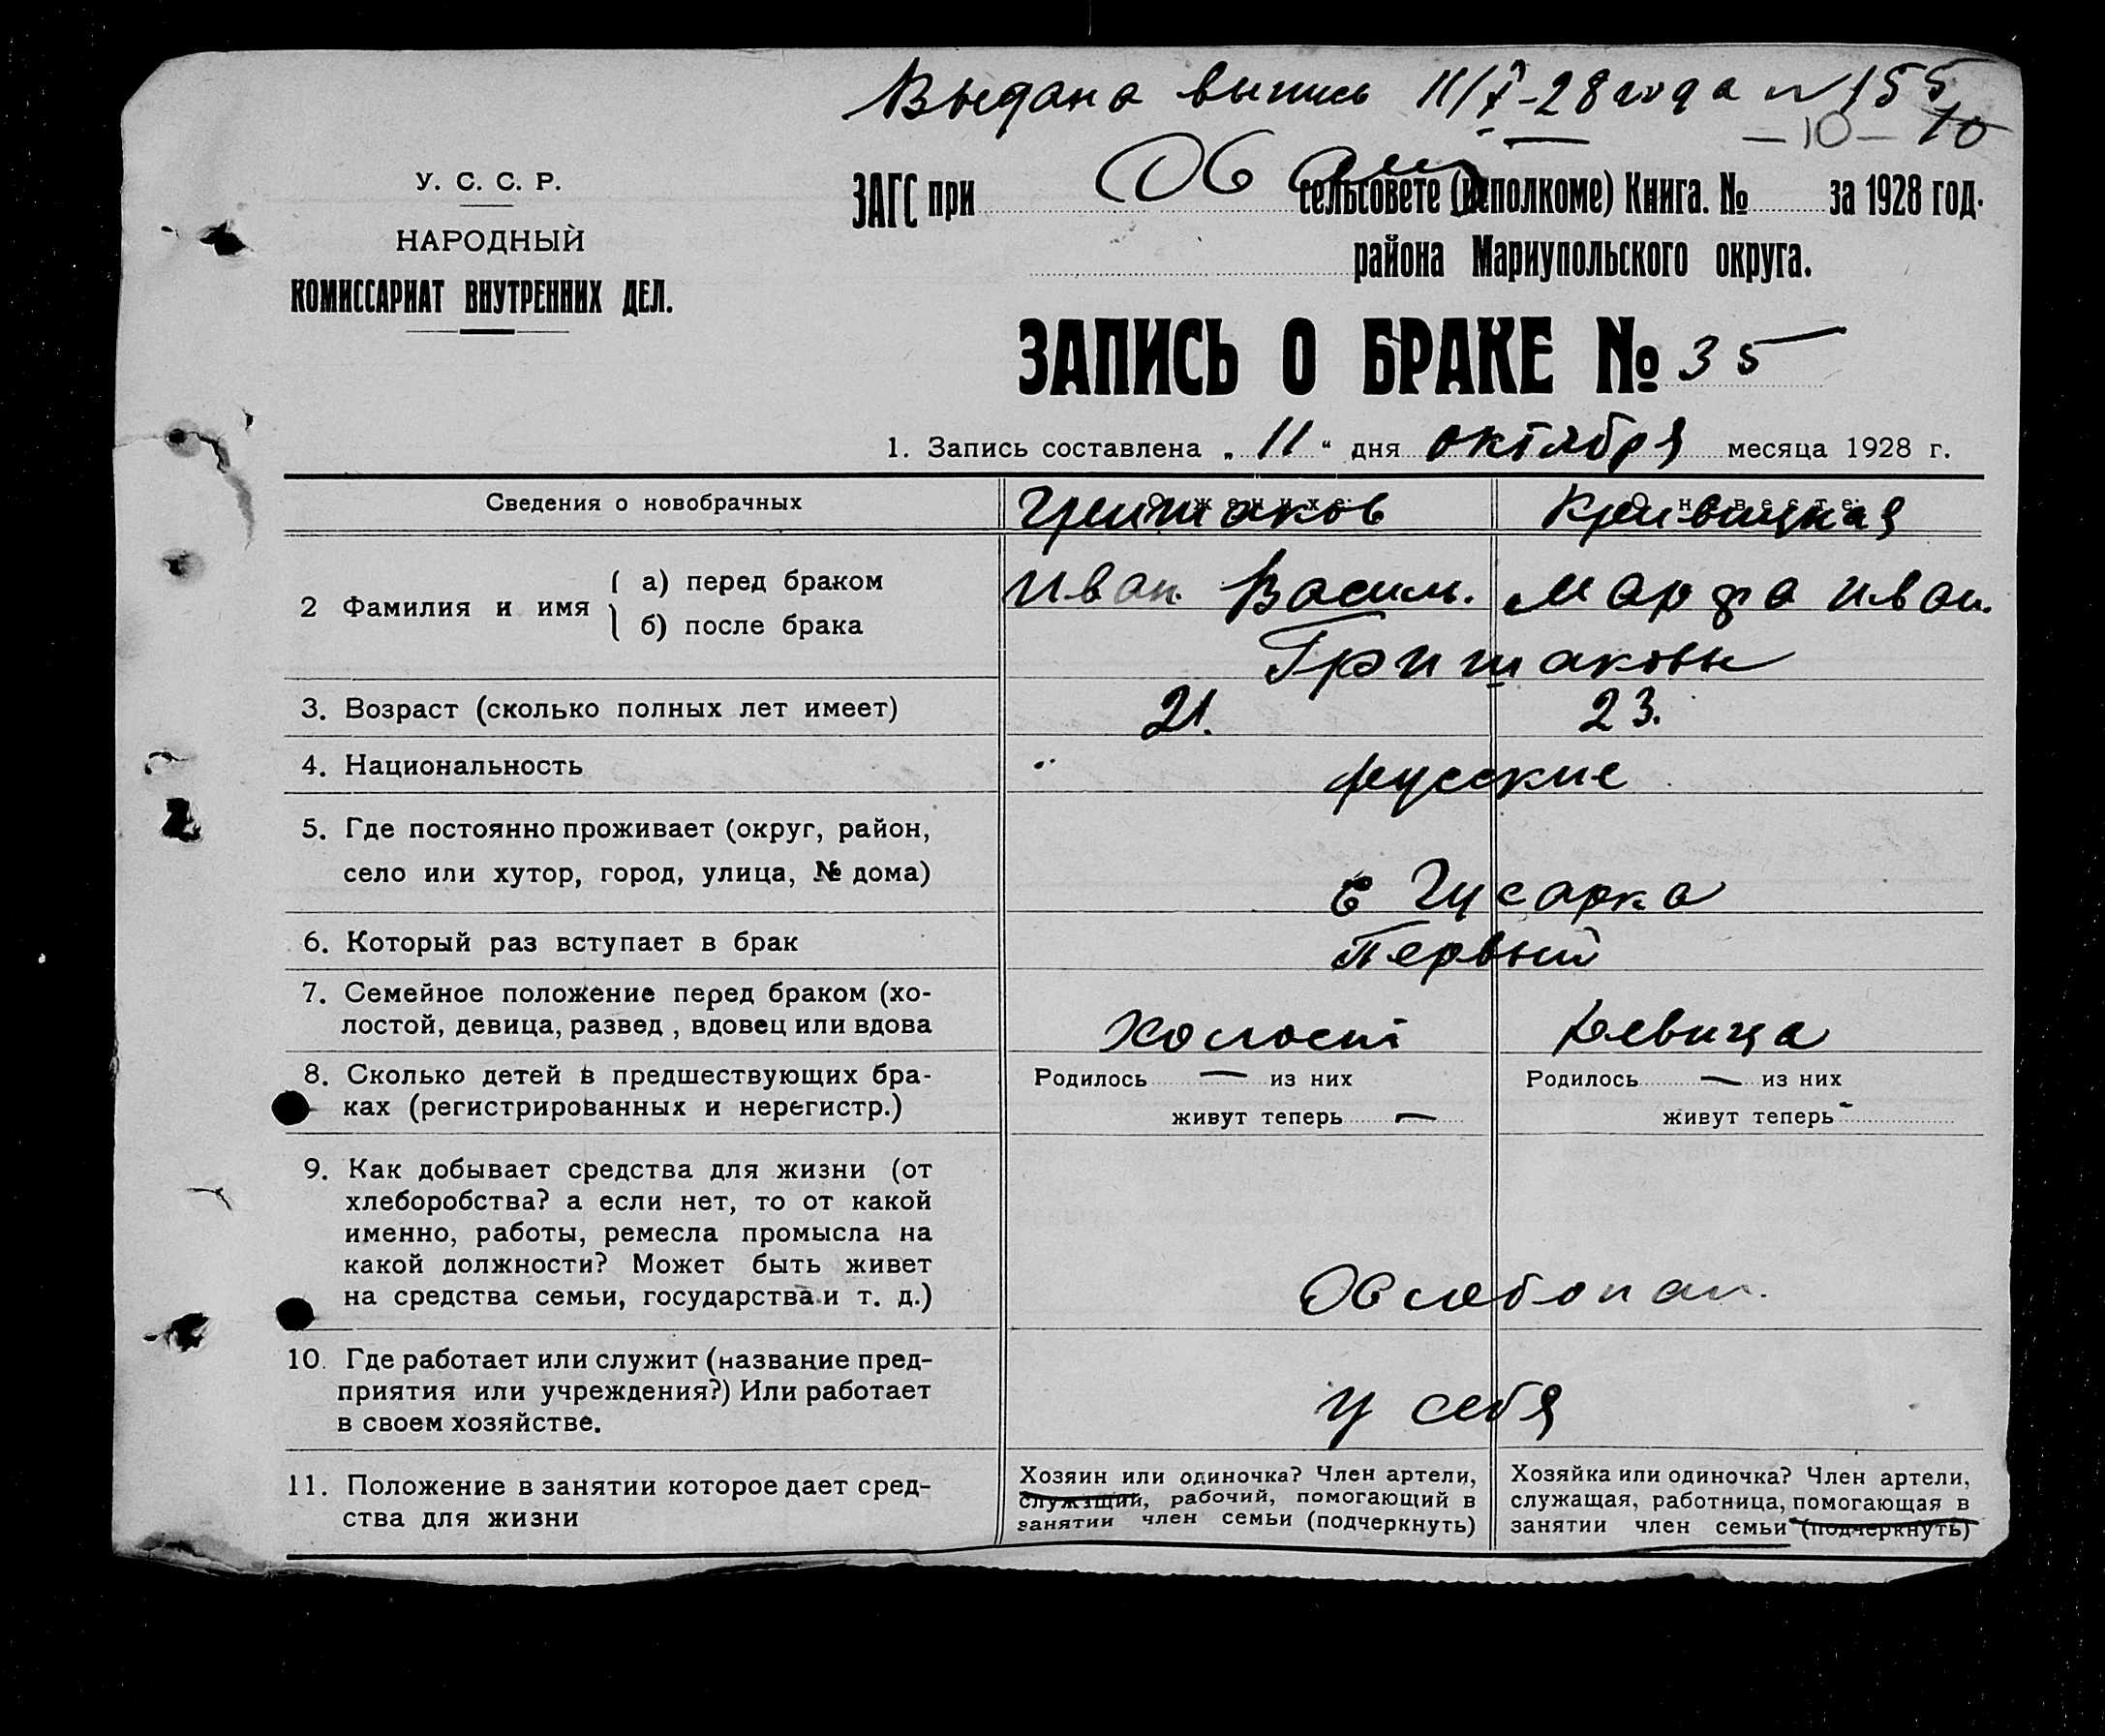 Выдана выпись 11/X-28 года № 155
-10- 10
У. С. С. Р.
НАРОДНЫЙ
КОМИССАРИАТ ВНУТРЕННИХ ДЕЛ.
ЗАГС при сельсовете (исполкоме) Книга. № за 1928 год.
района Мариупольского округа.
ЗАПИСЬ О БРАКЕ № 35
1. Запись составлена „ 11 “ дня октября месяца 1928 г.
Сведения о новобрачных
О женихе:
О невесте:
Гришаков Кривицкая
2 Фамилия и имя
а) перед браком
Иван Васил. Марфа Иван.
б) после брака
Гришаковы
3. Возраст (сколько полных лет имеет) 21. 23.
4. Национальность русские
5. Где постоянно проживает (округ, район,
село или хутор, город, улица, № дома)
с Гусарка
6. Который раз вступает в брак Первый
7. Семейное положение перед браком (хо-
лостой, девица, развед , вдовец или вдова
Холост Девица
8. Сколько детей в предшествующих бра-
ках (регистрированных и нерегистр.)
Родилось — из них
живут теперь —
Родилось — из них
живут теперь -
9. Как добывает средства для жизни (от
хлеборобства? а если нет, то от какой
именно, работы, ремесла промысла на
какой должности? Может быть живет
на средства семьи, государства и т. д.)
10. Где работает или служит (название пред-
приятия или учреждения?) Или работает
в своем хозяйстве.
у себя
11. Положение в занятии которое дает сред-
ства для жизни
Хозяин или одиночка? Член артели,
служащий, рабочий, помогающий в
занятии член семьи (подчеркнуть)
Хозяйка или одиночка? Член артели,
служащая, работница, помогающая в
занятии член семьи (подчеркнуть)